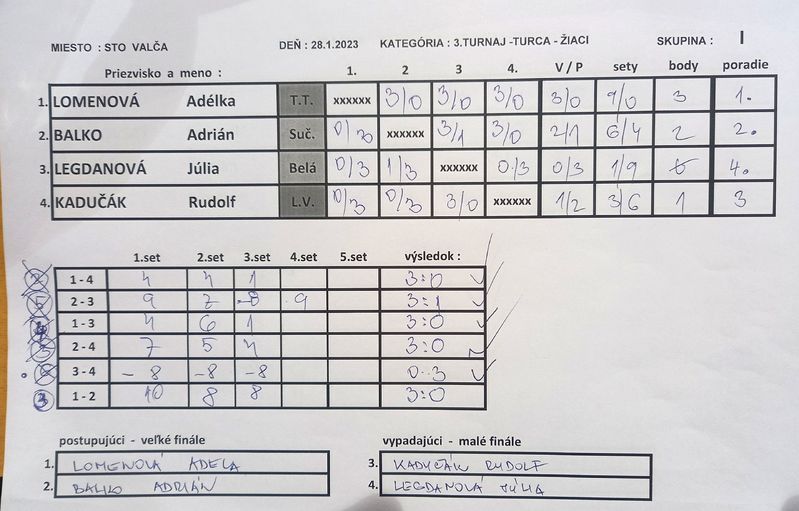 MIESTO : STO VALČA DEŇ : 28.1.2023 KATEGÓRIA : 3.TURNAJ -TURCA - ŽIACI SKUPINA : I
Priezvisko a meno : 1. 2 3 4. V / P sety body poradie
1. LOMENOVÁ Adélka T.T. xxxxxx 3/0 3/0 3/0 3/0 9/0 3 1.
2. BALKO Adrián Suč. 0/3 xxxxxx 3/1 3/0 2/1 6/4 2 2.
3. LEGDANOVÁ Júlia Belá 0/3 1/3 xxxxxx 0/3 0/3 1/9 0 4.
4. KADUČÁK Rudolf L.V. 0/3 0/3 3/0 xxxxxx 1/2 3/6 1 3
1.set 2.set 3.set 4.set 5.set výsledok :
1 - 4 4 4 1 3:0
5 2 - 3 9 7 -8 9 3:1
1 - 3 4 6 1 3:0
2 - 4 7 5 4 3:0
3 - 4 -8 -8 -8 0:3
3 1 - 2 10 8 8 3:0
postupujúci - veľké finále vypadajúci - malé finále
1. LOMENOVÁ ADELA 3. KADUČÁK RUDOLF
2. BALKO ADRIÁN 4. LEGDANOVÁ JÚLIA